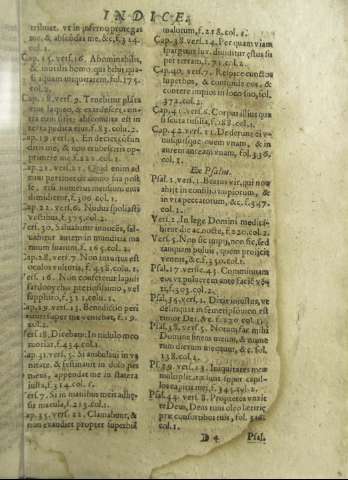 INDICE.
tribuat. vt in inferno protegas
me, & abscondas me, &c. f. 314.
col. 1.
Cap. 15. vers. 16. Abominabilis,
& inutilis homo, qui bibit qua-
si aquam iniquitatem, fol. 175.
col. 2.
Cap. 18. vers. 9. Tenebitur planta
eius laqueo, & exardescet con-
tra eum sitis; abscondita est in
terra pedica eius, f. 83. col. 2.
Cap. 19. vers.
me, & vero erubescitis op-
primere me. f. 221. col. 1.
Cap. 21. vers. 21. Quid enim ad
eum pertinet de domo sua post
se, etsi numerus mensium eius
dimidietur, f. 306. col. 1.
Cap. 22. vers. 6. Nudos spoliasti
vestibus, f. 375. col. 2.
Vers. 30. Saluabitur innocens, sal-
uabitur autem in munditia ma-
nuum suarum, f. 265. col. 2.
Cap. 28. vers. 7. Non intuitus est
oculus vulturis, f. 438. col. 1.
Vers. 16. Non conferetur lapidi
sardonycho pretiosissimo, vel
sapphiro, f. 31. col. 1.
Cap. 29. vers. 13. Benedictio peri-
turi super me veniebat, f. 19.
col. 2.
Vers. 18. Dicebam: In nidulo meo
moriar, f. 434. col. 1.
Cap. 31. vers. 5. Si ambulaui in va-
nitate, & festinauit in dolo pes
meus, appendet me in statera
iusta, f. 314. col. 1.
Vers. 7. Si in manibus meis adhæ-
sit macula, f. 215. col. 1.
Cap. 35. vers. 12. Clamabunt, &
non exaudiet propter superbiã
malorum, f. 218. col. 1.
Cap. 38. vers. 24. Per quam viam
spargitur lux, diuiditur æstus su-
per terram, f. 71. col. 2.
Cap. 40. vers. 7. Respice cunctos
superbos, & confunde eos, &
contere impios in loco suo, fol.
372. col. 2.
Cap. 41. vers. 6. Corpus illius qua-
si scuta fusilia, f. 288. col. 1.
Cap. 42. vers. 11. Dederunt ei v-
nusquisque ouem vnam, & in-
aurem auream vnam, fol. 336.
col. 1.
Ex Psalm.
Psal. 1. vers. 1. Beatus vir, qui non
abijt in consilio impiorum, &
in via peccatorum, &c. f. 347.
col. 1.
Vers. 2. In lege Domini medita-
bitur die ac nocte, f. 220. col. 2.
Vers. 5. Non sic impij, non sic, sed
tanquam puluis, quem proijcit
ventus, &c. f. 350. col. 1.
Psal. 17. vers. 43. Comminuam
eos vt puluerem ante faciẽ vẽ-
ti, f. 303. col. 2.
Psal. 35. vers. 2. Dixit iniustus, vt
delinquat in semetipso: non est
timor Dei, &c. f. 220. col. 2.
Psal. 38. vers. 5. Notum fac mihi
Domine finem meum, & nume-
rum dierum meorum, &c. fol.
138. col. 2.
Psal. 39. vers. 13. Iniquitates meæ
multiplicatæ sunt super capil-
los capitis mei, f. 345. col. 2.
Psal. 44. vers. 8. Propterea vnxit
te Deus, Deus tuus oleo lætitiæ
præ consortibus tuis, fol.
col. 1.
D 4 Psal.